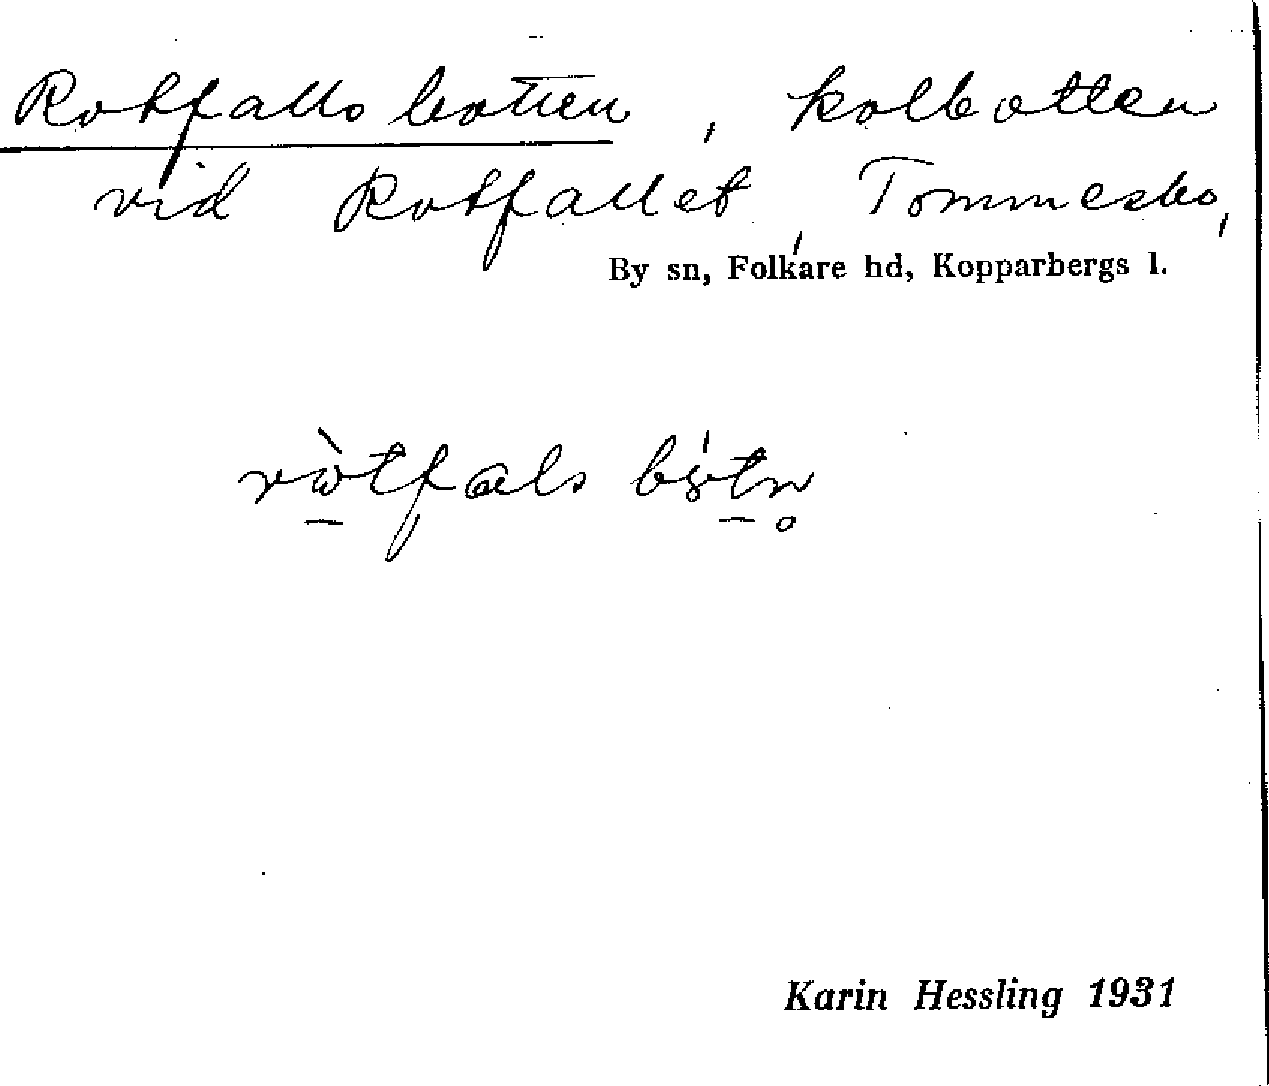 Rotfallsbotten, kolbotten
vid Rotfallet, Tommesbo,
By sn, Folkare hd, Kopparbergs l.
Karin Hessling 1931